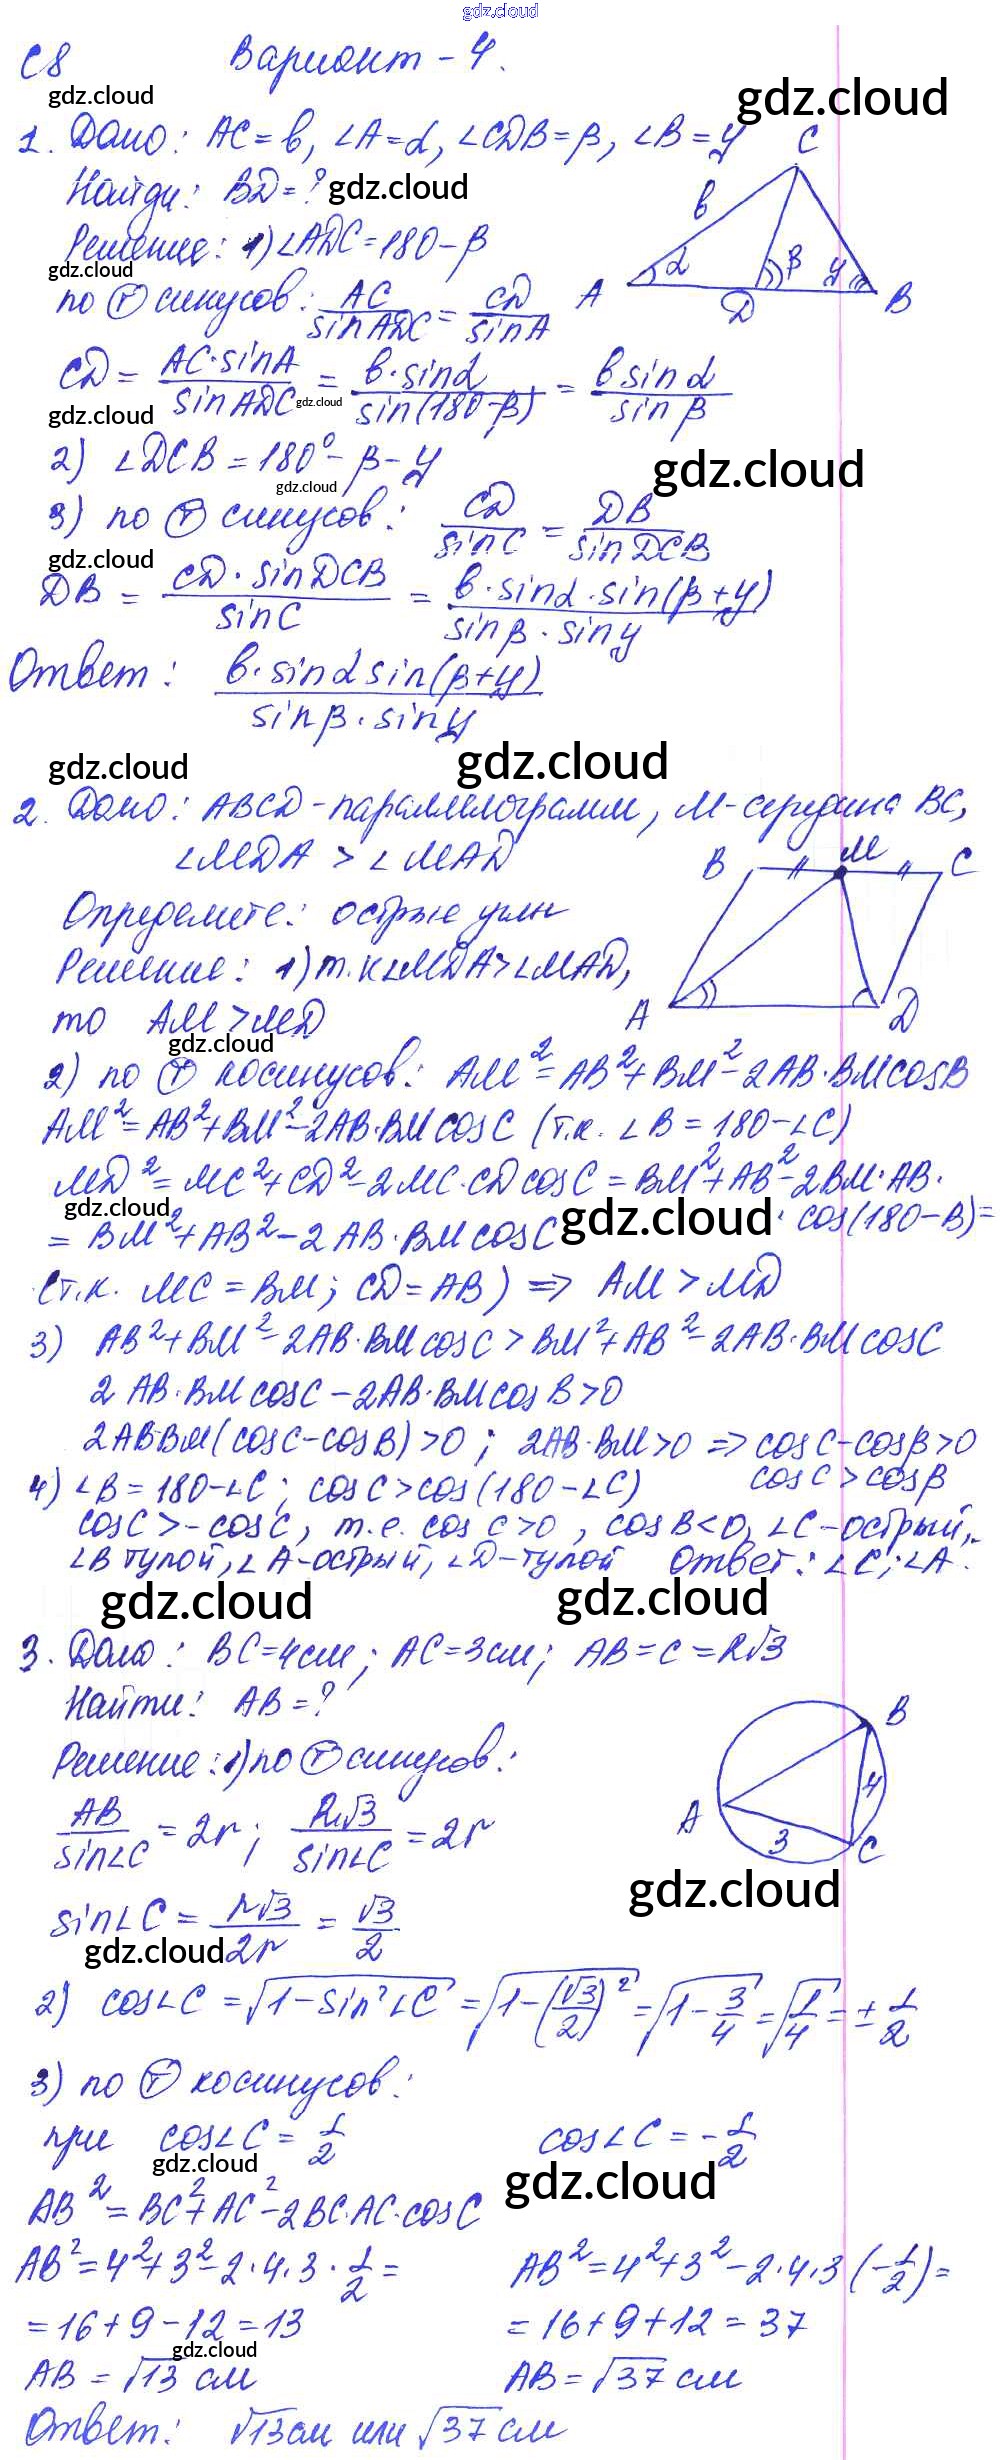 gdz.cloud
С8 Вариант - 4.
gdz.cloud gdz.cloud
1. Дано: AC = b, ∠A = α, ∠CDB = β, ∠B = γ
Найди: BD = ? gdz.cloud
Решение: 1) ∠ADC = 180 - β
gdz.cloud
по Ⓣ синусов: AC/sin ADC = CD/sin A
C b α β γ A D B
CD = AC · sin A/sin ADC = b · sin α/sin(180 - β) = b sin α/sin β
gdz.cloud gdz.cloud
2) ∠DCB = 180° - β - γ
gdz.cloud gdz.cloud
3) по Ⓣ синусов: CD/sin C = DB/sin DCB
gdz.cloud
DB = CD · sin DCB/sin C = b · sin α · sin(β + γ)/sin β · sin γ
Ответ: b · sin α sin(β + γ)/sin β · sin γ
gdz.cloud gdz.cloud
2. Дано: ABCD - параллелограмм, M - середина BC,
∠MDA > ∠MAD
B M C A D
Определите: острые углы
Решение: 1) т.к ∠MDA > ∠MAD,
то AM > MD
gdz.cloud
2) по Ⓣ косинусов: AM² = AB² + BM² - 2AB · BM cos B
AM² = AB² + BM² - 2AB · BM cos C (т.к. ∠B = 180 - ∠C)
MD² = MC² + CD² - 2MC · CD cos C = BM² + AB² - 2BM · AB ·
gdz.cloud gdz.cloud · cos(180 - B) =
= BM² + AB² - 2AB · BM cos C
(т.к. MC = BM; CD = AB) => AM > MD
3) AB² + BM² - 2AB · BM cos C > BM² + AB² - 2AB · BM cos C
2 AB · BM cos C - 2AB · BM cos B > 0
2AB BM(cos C - cos B) > 0; 2AB · BM > 0 => cos C - cos β > 0
4) ∠B = 180 - ∠C; cos C > cos(180 - ∠C) cos C > cos β
cos C > - cos C, т.е. cos C > 0, cos B < 0, ∠C - острый,
∠B тупой, ∠A - острый, ∠D - тупой Ответ: ∠C; ∠A.
gdz.cloud gdz.cloud
3. Дано: BC = 4см; AC = 3см; AB = c = R√3
Найти: AB = ?
Решение: 1) по Ⓣ синусов:
B A 4 3 C
AB/sin∠C = 2r; R√3/sin∠C = 2r
gdz.cloud
sin∠C = r√3/2r = √3/2
gdz.cloud
2) cos∠C = √1 - sin²∠C = √1 - (√3/2)² = √1 - 3/4 = √1/4 = ± 1/2
3) по Ⓣ косинусов:
при cos∠C = 1/2 cos∠C = - 1/2
gdz.cloud gdz.cloud
AB² = BC² + AC² - 2BC · AC · cos C
AB² = 4² + 3² - 2 · 4 · 3 · 1/2 = AB² = 4² + 3² - 2 · 4 · 3 (- 1/2) =
= 16 + 9 - 12 = 13 = 16 + 9 + 12 = 37
gdz.cloud
AB = √13 см AB = √37 см
Ответ: √13 см или √37 см